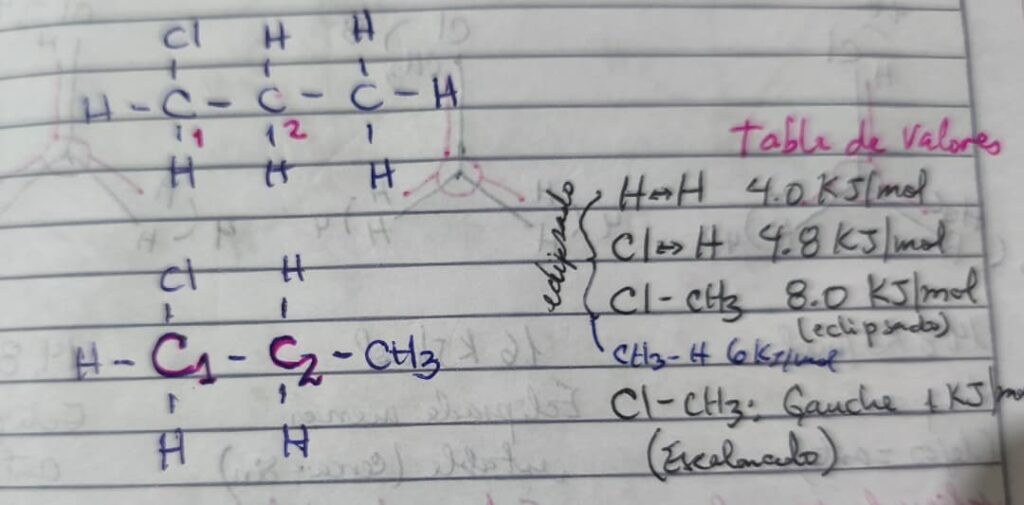 Cl H H
H - C - C - C - H
1 2
H H H
Table de valores
eclipsado
H↔H 4.0 KJ/mol
Cl↔H 4.8 KJ/mol
Cl - CH3 8.0 KJ/mol
(eclipsado)
CH3 - H 6 KJ/mol
Cl - CH3: Gauche 1 KJ/mo
(Escalonado)
Cl H
H - C1 - C2 - CH3
H H